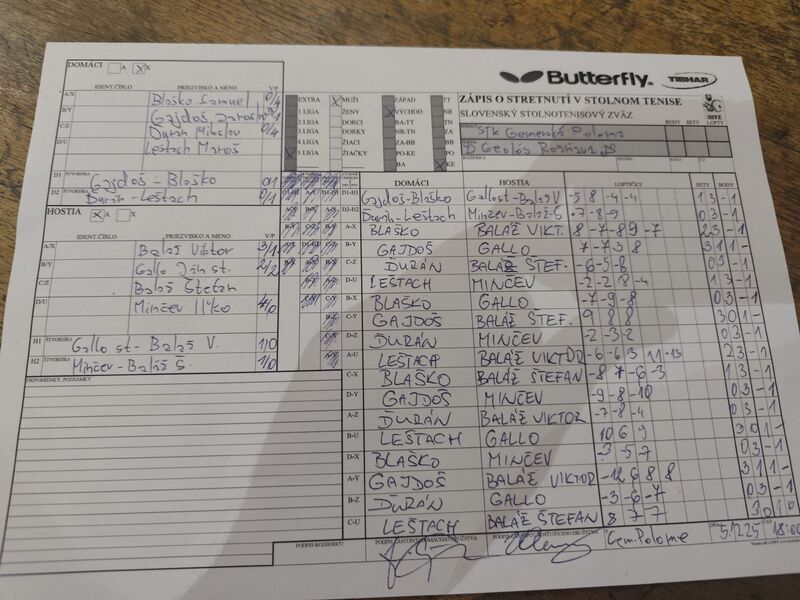 DOMÁCI A X
IDENT. ČÍSLO PRIEZVISKO A MENO V/P
A/X Blaško Samue 0/4
B/Y Gajdoš Jaroslav
C/Z Ďurán Miloslav 0/4
D/U Leštach Maroš
D1 ŠTVORHRA Gajdoš - Blaško 0/1
D2 ŠTVORHRA Ďurán - Leštach 0/1
HOSTIA A X
IDENT. ČÍSLO PRIEZVISKO A MENO V/P
A/X Baláž Viktor 3/1
B/Y Gallo Ján st. 2/2
C/Z Baláž Štefan
D/U Minčev Il'ko 4/0
H1 ŠTVORHRA Gallo st - Baláž V. 1/0
H2 ŠTVORHRA Minčev - Baláž Š. 1/0
PRIPOMIENKY, POZNÁMKY
EXTRA X MUŽI ZÁPAD TT
1. LIGA ŽENY X VÝCHOD NR
2. LIGA DORCI BA-TT ZA
3. LIGA DORKY NR-TN BB
4. LIGA ŽIACI ZA-TN PO
X 5. LIGA ŽIAČKY PO-KE
BA X KE
Butterfly TIBHAR
ZÁPIS O STRETNUTÍ V STOLNOM TENISE
SLOVENSKÝ STOLNOTENISOVÝ ZVÄZ
SSTZ
BODY SETY LOPTY
STK Gemerská Poloma
Geológ Rožňava
DOMÁCI HOSTIA LOPTIČKY SETY BODY
D1-H1 Gajdoš-Blaško Gallo st-Baláž V -5 8 -4 -4 1 3 -1
D2-H2 Ďurán-Leštach Minčev-Baláž Š -7 -8 -9 0 3 -1
A-X BLAŠKO BALÁŽ VIKT. 8 -7 -8 9 -7 2 3 -1
B-Y GAJDOŠ GALLO 7 -7 3 8 3 1 1 -
C-Z ĎURÁN BALÁŽ ŠTEF. -6 -5 -8 0 3 -1
D-U LEŠTACH MINČEV -2 -2 8 -4 1 3 -1
B-X BLAŠKO GALLO -7 -9 -8 0 3 -1
C-Y GAJDOŠ BALÁŽ ŠTEF. 9 8 8 3 0 1 -
D-Z ĎURÁN MINČEV -2 -3 -2 0 3 -1
A-U LEŠTACH BALÁŽ VIKTOR -6 -6 3 11 -13 2 3 -1
C-X BLAŠKO BALÁŽ ŠTEFAN -8 7 -6 -3 1 3 -1
D-Y GAJDOŠ MINČEV -9 -8 -10 0 3 -1
A-Z ĎURÁN BALÁŽ VIKTOR -7 -8 -4 0 3 -1
B-U LEŠTACH GALLO 10 6 9 3 0 1 -
D-X BLAŠKO MINČEV -3 -5 -7 0 3 -1
A-Y GAJDOŠ BALÁŽ VIKTOR -12 6 8 8 3 1 1 -
B-Z ĎURÁN GALLO -3 -6 -7 0 3 -1
C-U LEŠTACH BALÁŽ ŠTEFAN 8 7 7 3 0 1 0
PODPIS ROZHODCU PODPIS ZÁSTUPCU DOMÁCEHO DRUŽSTVA PODPIS ZÁSTUPCU HOSŤUJÚCEHO DRUŽSTVA Gem. Poloma 5.12.25 18:00